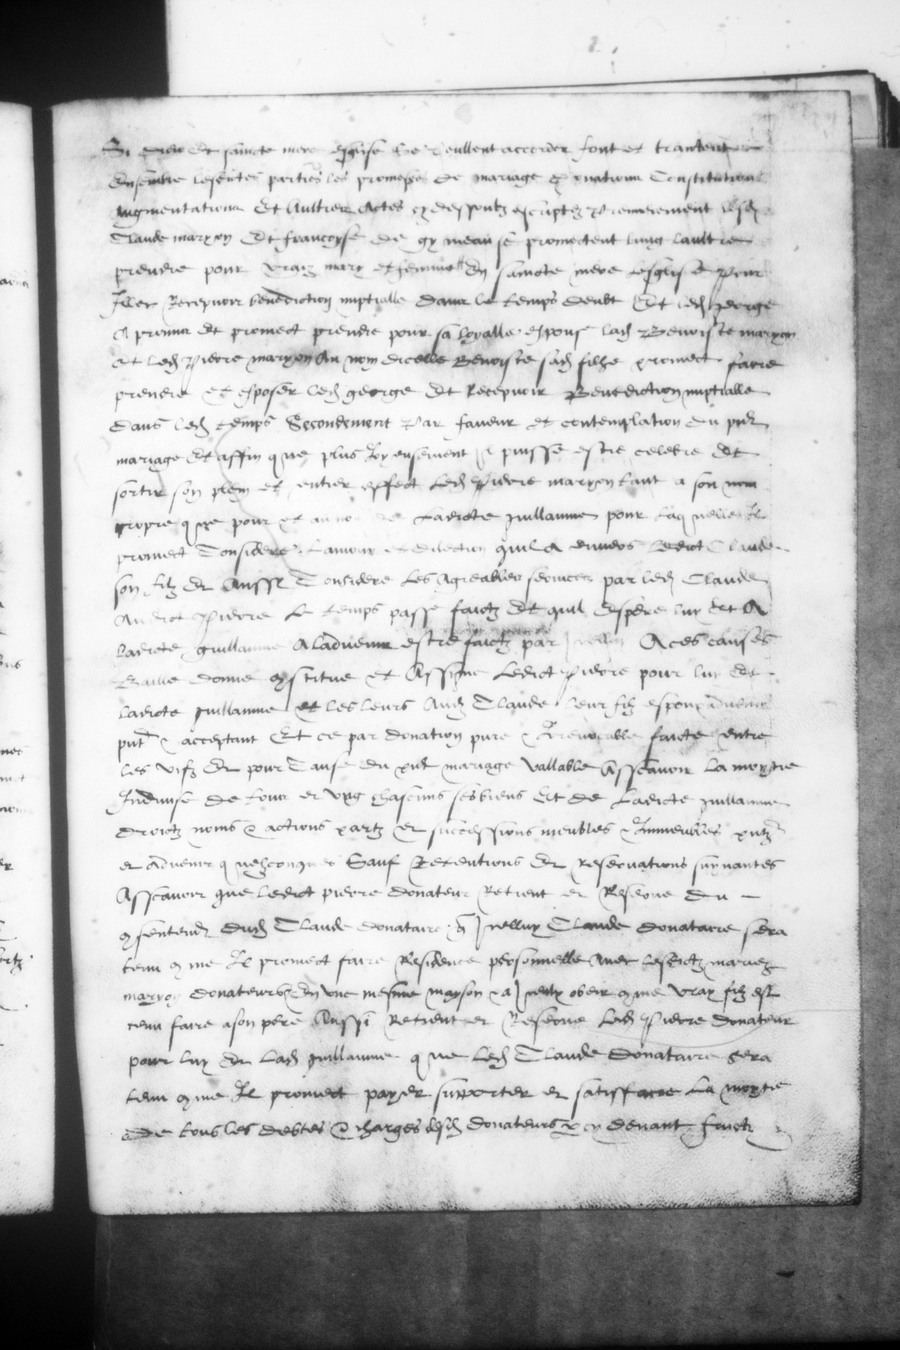 Si dieu et saincte mere eglise se veullent accorder font et traictent
Ensemble lesdites parties les promesses de mariage donations Constitutions
augmentations Et Aultres Actes cy dessoubz escriptz Premierement lesd
Claude maryon Et francoyse de promectent lung laultre
prendre pour vrays mary et femme En saincte mere lesglise Pour
Illec Recepvoir benediction nuptialle dans le temps deubt Et led George
A promis et promect prendre pour sa loyalle espouse lad Benoiste maryon
et led Pierre maryon Au nom dicelle Benoiste sad fillie promect faire
prendre et esposer led george Et Recepvoir Benediction nuptialle
dans led temps Secondement Par faveur et contemplation du pnt
mariage Et affin que plus Joyeusement Il puisse estre celebre Et
sortir son plein et entier effect Led Pierre maryon tant a son nom
propre que pour et au nom de Ladicte guillaume pour Laquelle Il
promect Considere Lamour et dilection quil a envers Ledict Claude
son filz Et Aussi Considere Les Agreables services par led Claude
Audict Pierre Le temps passe faictz Et quil espere luy Et A
ladicte guillaume A ladvenir estre faictz par Icelluy A ces causes
Baille donne constitue et Assigne Ledict Pierre pour luy Et
ladicte guillaume et les leurs Aud Claude leur filz espoux advenir
pnt & acceptant Et ce par donation pure & Irrevocable faicte entre
les vifz Et pour Cause du pnt mariage vallable Asscavoir La moytie
Indivise de tous et ung chascuns ses biens Et de Ladicte guillaume
droictz noms & actions partz et successions meubles & Immeubles pntz
et advenir quelzconques Sauf Retentions Et reservations suyvantes
Asscavoir que ledict pierre donateur Retient et Reserve du
consentement dud Claude donataire que Icelluy Claude donataire sera
tenu comme Il promect faire Residence personnelle avec lesdictz mariez
maryon donateurs En une mesme mayson & a Iceulx obeir comme vray filz est
tenu faire a son pere Aussi Retient et Reserve Led Pierre donateur
pour luy Et Lad guillaume que Led Claude donataire sera
tenu comme Il promect payer supporter et satisfaire La moytie
De tous les debtes & charges desd donateurs cy devant faictz